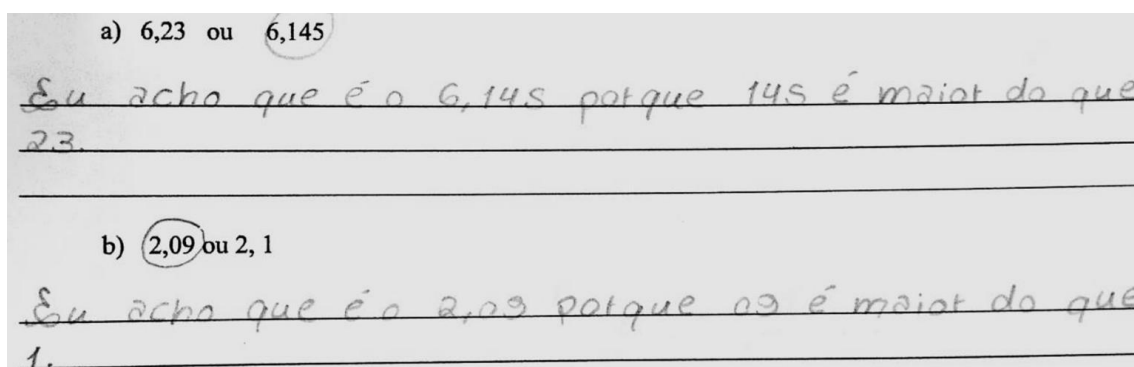 a) 6,23 ou 6,145
Eu acho que é o 6,145 porque 145 é maior do que
23.
b) 2,09 ou 2, 1
Eu acho que é o 2,09 porque 09 é maior do que
1.